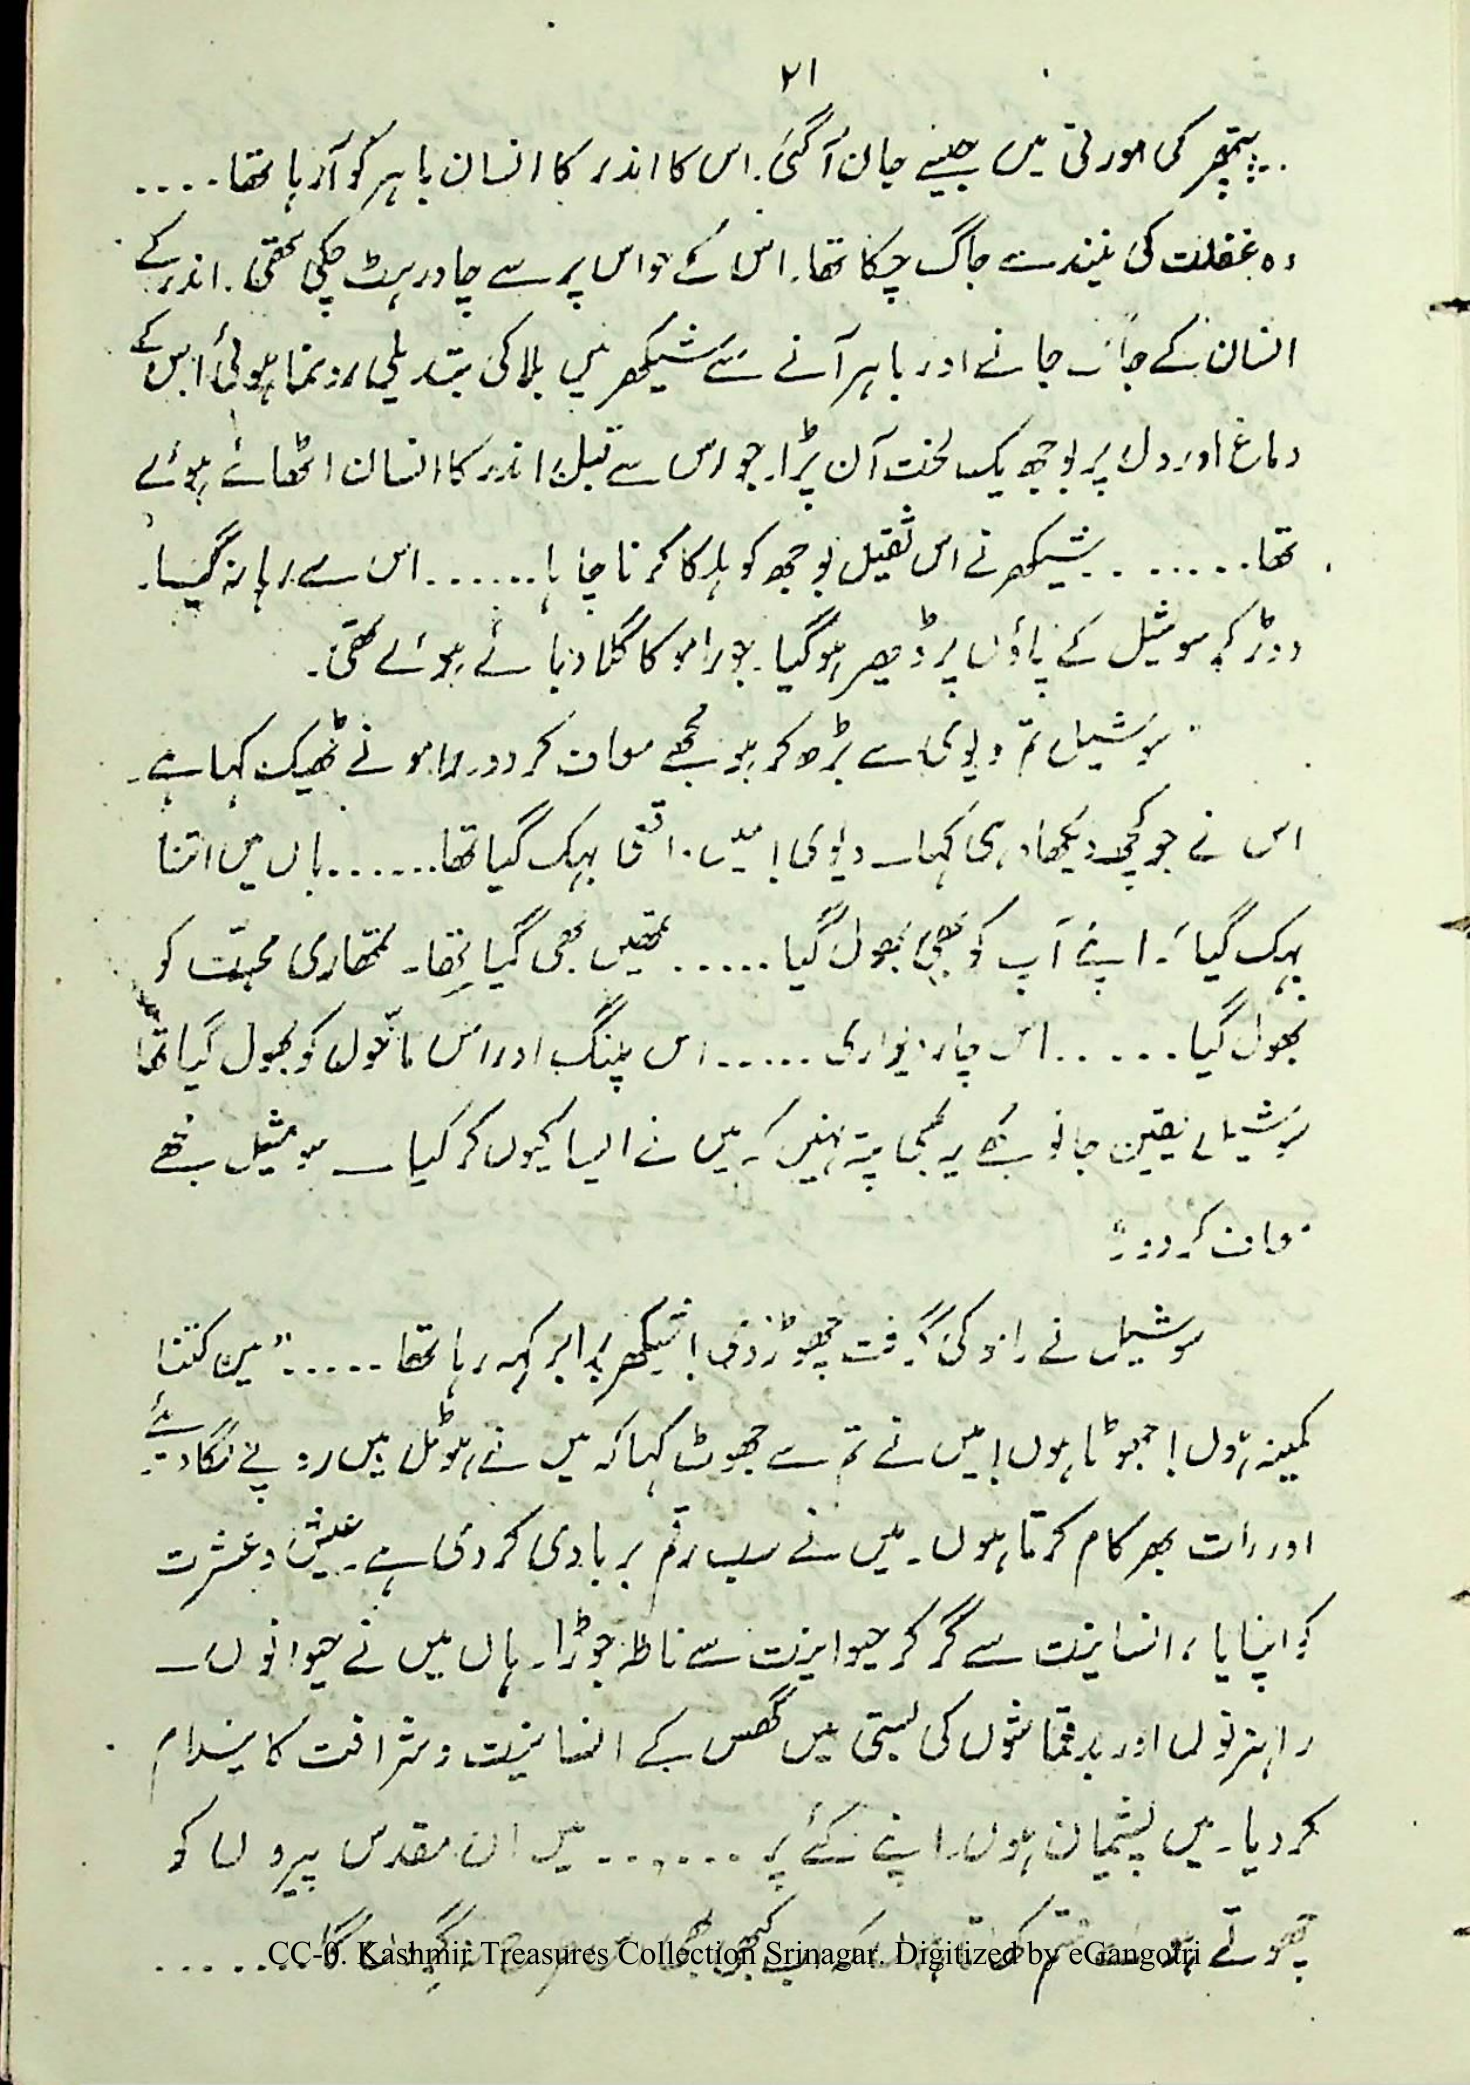 ۲۱
پتھر کی مورتی میں جیسے جان آگئی. اس کا اندر کا انسان باہر کو آرہا تھا....
وہ غفلت کی نیند سے جاگ چکا تھا. اس کے حواس پر سے چادر ہٹ چکی تھی. اندر کے
انسان کے جاگ جانے اور باہر آنے سے شیکھر میں بلا کی تبدیلی رونما ہوئی اس کے
دماغ اور دل پر بوجھ یک لخت آن پڑا. جو اس سے قبل اندر کا انسان اٹھائے ہوئے
تھا....... شیکھر نے اس ثقیل بوجھ کو ہلکا کرنا چاہا...... اس سے رہا نہ گیا۔
دوڑ کر سوشیل کے پاؤں پر ڈھیر ہوگیا۔ جو رامو کا گلا دبائے ہوئے تھی۔
"سوشیل تم دیوی سے بڑھ کر ہو مجھے معاف کردو۔ رامو نے ٹھیک کہا ہے۔
اس نے جو کچھ دیکھا وہی کہا۔ دیوی! میں واقعی بہک گیا تھا...... ہاں میں اتنا
بہک گیا۔ اپنے آپ کو بھی بھول گیا...... تمھیں بھی گیا تھا۔ تمھاری محبّت کو
بھول گیا...... اس چار دیواری..... اس پلنگ اور اس ماحول کو بھول گیا تھا
سوشیل یقین جانو مجھے یہ بھی پتہ نہیں کہ میں نے ایسا کیوں کر کیا — سوشیل مجھے
معاف کردو۔"
سوشیل نے رامو کی گرفت چھوڑ دی! شیکھر برابر کہہ رہا تھا..... "میں کتنا
کمینہ ہوں! جھوٹا ہوں! میں نے تم سے جھوٹ کہا کہ میں نے ہوٹل میں روپے لگا دیئے
اور رات بھر کام کرتا ہوں۔ میں نے سب رقم بربادی کردی ہے۔ عیش و عشرت
کو اپنایا، انسانیت سے گر کر حیوانیت سے ناطہ جوڑا۔ ہاں میں نے حیوانوں —
راہزنوں اور بدقماشوں کی بستی میں گھس کے انسانیت و شرافت کا نیلام
کردیا۔ میں پشیمان ہوں اپنے کئے پر ....... میں ان مقدس پیروں کو
چھوتے ہوئے قسم کھاتا ہوں کہ اب کبھی بھی
CC-0. Kashmir Treasures Collection Srinagar. Digitized by eGangotri